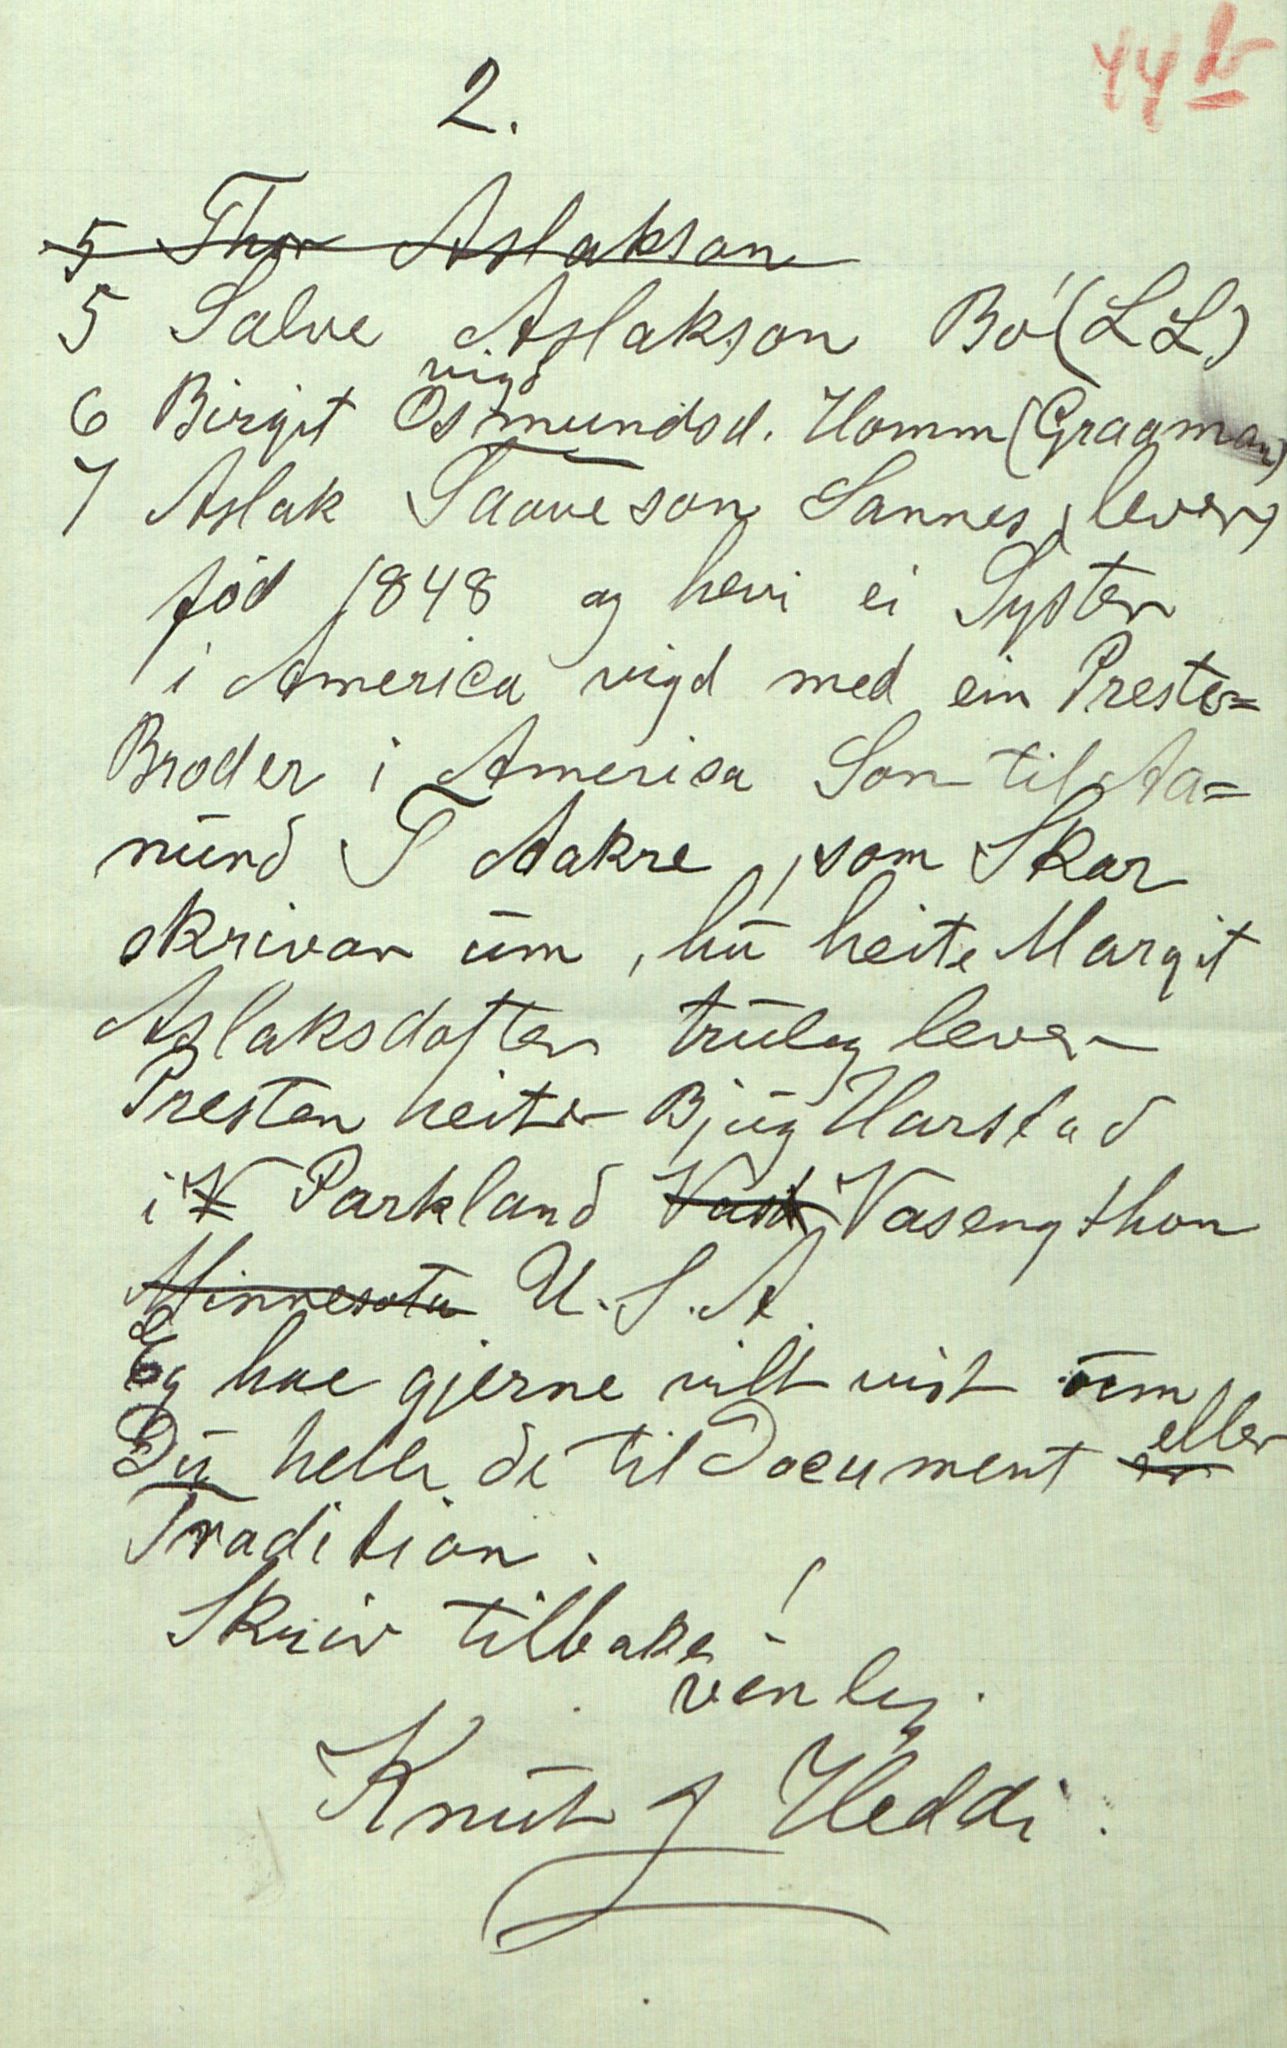 44 b
2.
5 Thor Aslakson
5 Salve Aslakson Bö (LL)
vigd
6 Birgit Osmundsd. Homm (Graaman)
7 Aslak Taaveson Sannes, lever,
föd 1848 og hevi ei Syster
i America vigd med ein Preste=
Broder i America Son til Aa=
nünd T Aakre, som Skar
skrivar üm, hü heite Margit
Aslaksdotter trüleg lever
Presten heiter Bjüg Harstad
i V Parkland Vash Vasengthon
Minnesota U.S.A.
Eg hae gjerne vilt vist üm
Dü helle de til Document er eller
Tradition.
Skriv tilbake!
venleg.
Knüt J Heddi.